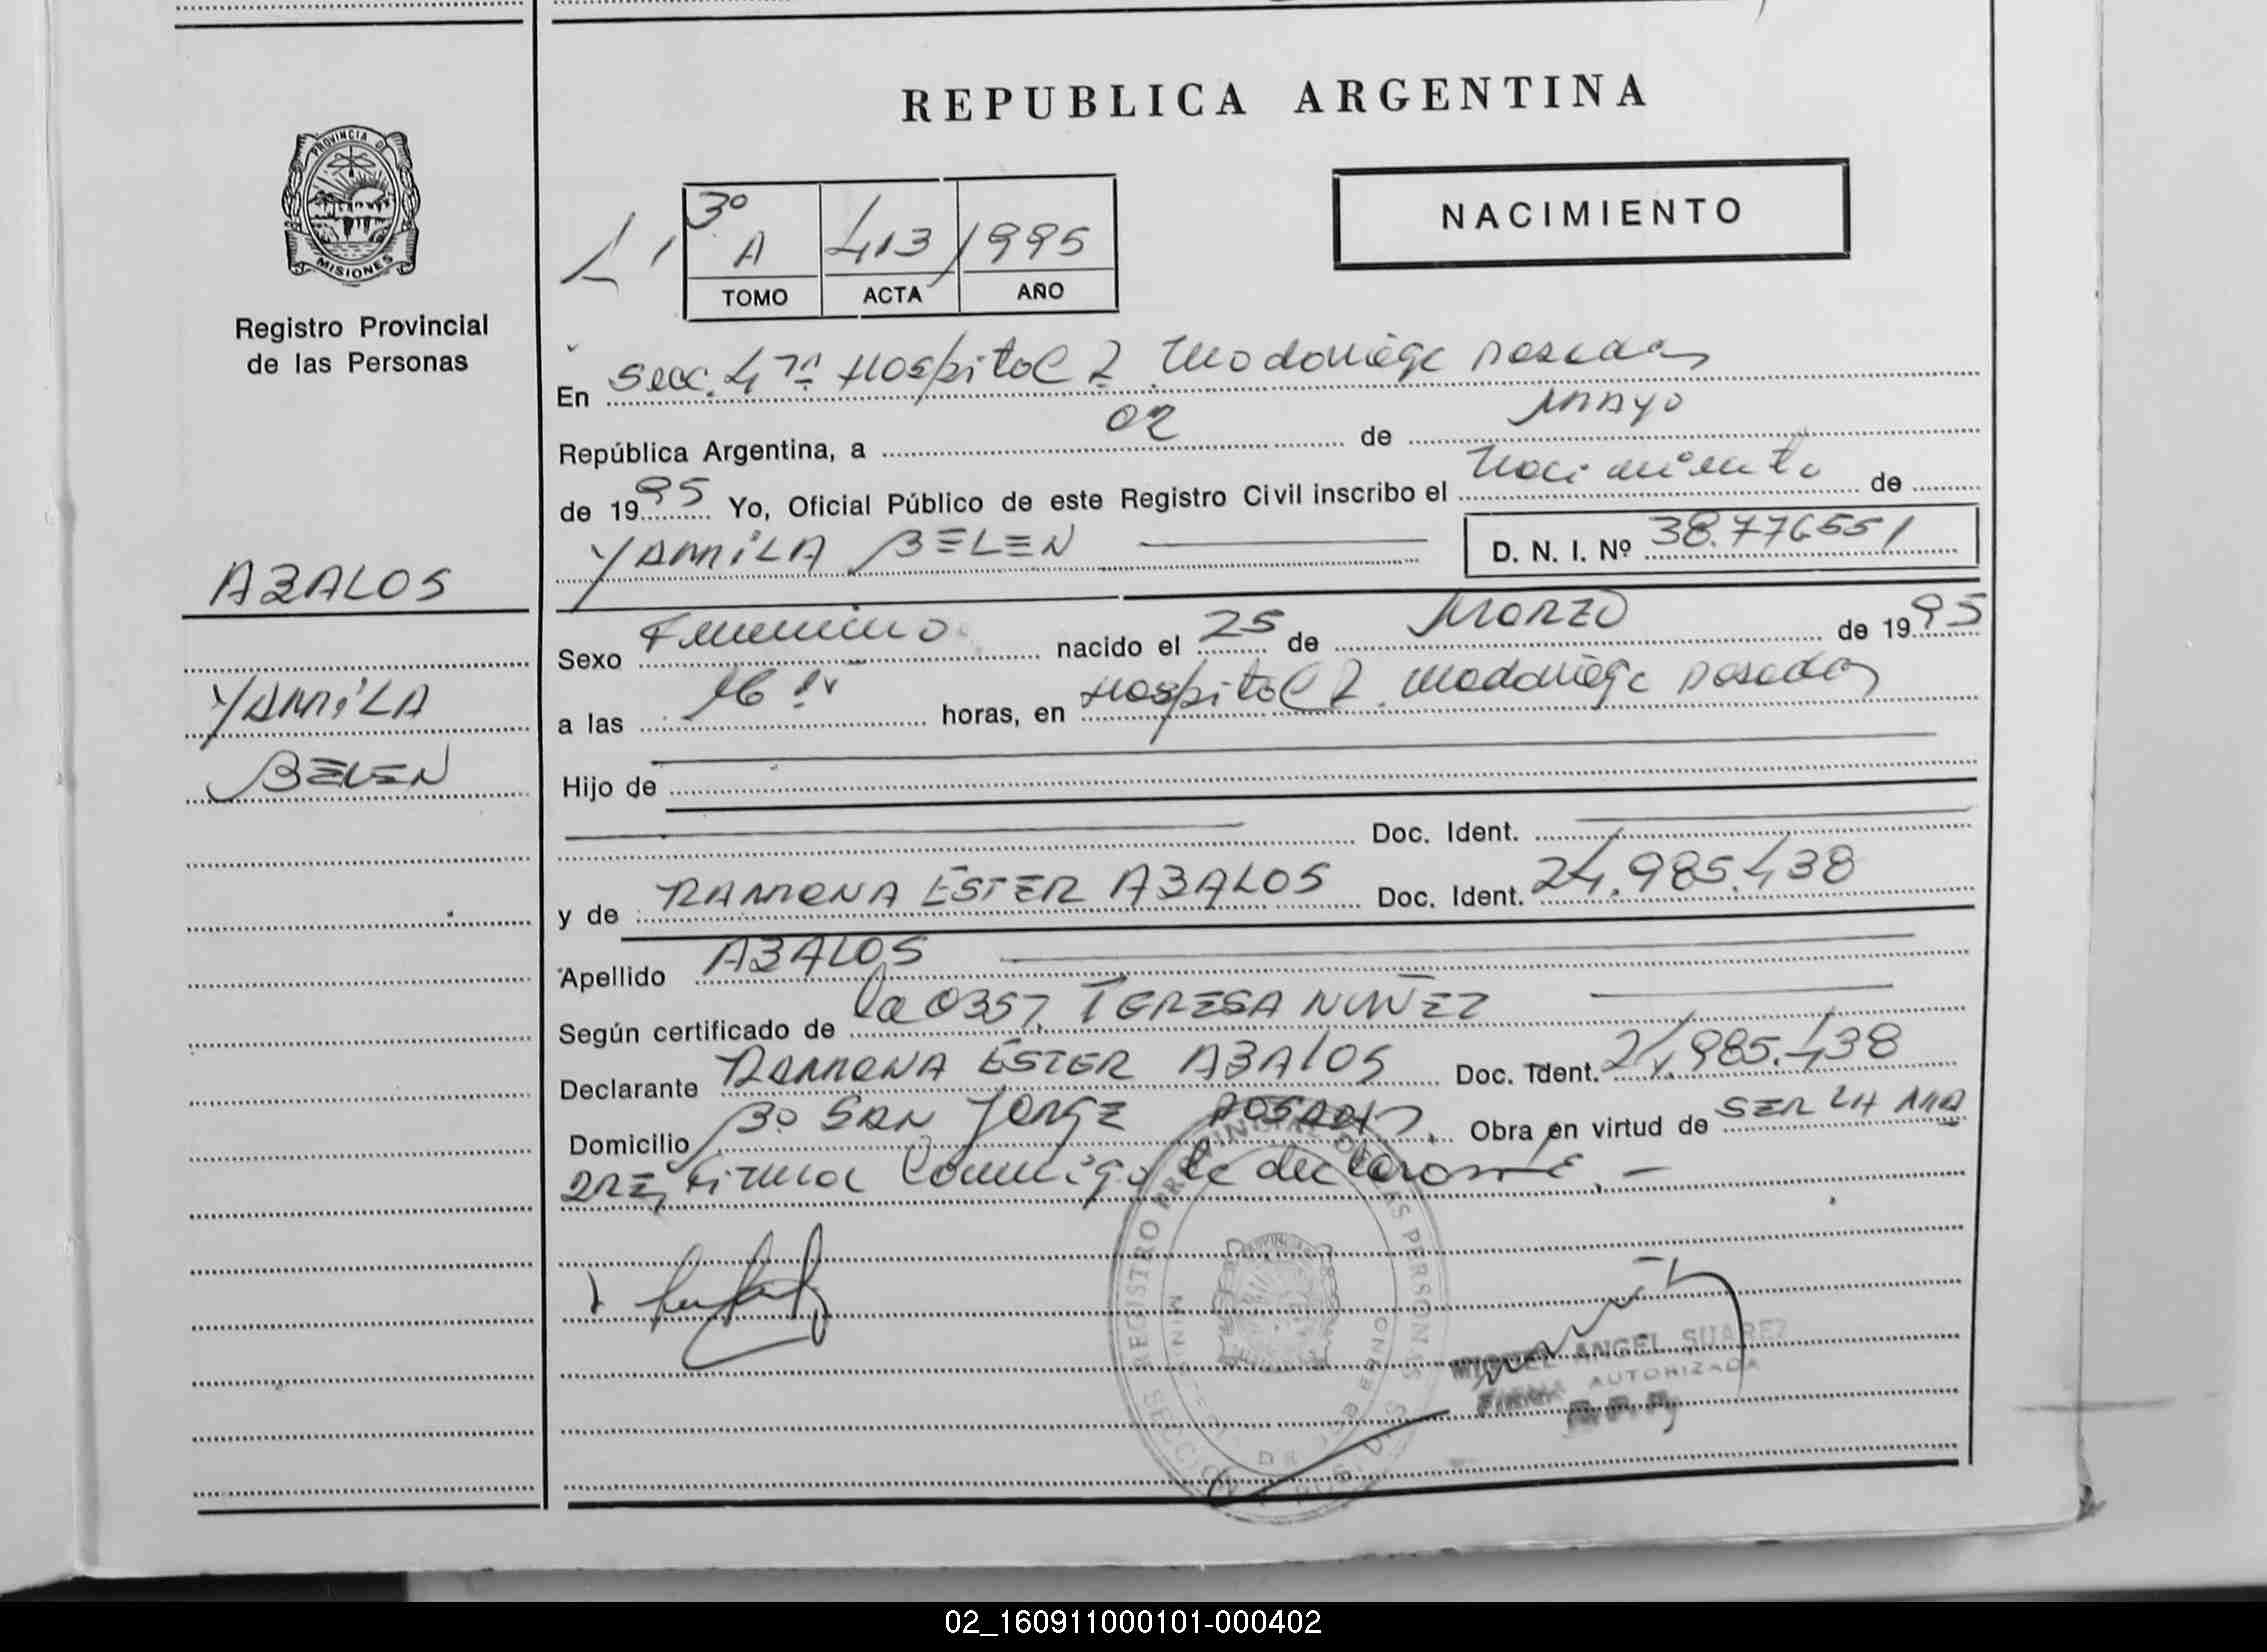 REPUBLICA ARGENTINA
PROVINCIA DE
MISIONES
Registro Provincial
de las Personas
3º
A 413 1995
TOMO ACTA AÑO
NACIMIENTO
En Secc. 4ta Hospital R. Madariaga Posadas
República Argentina, a 02 de MAYO
de 1995 Yo, Oficial Público de este Registro Civil inscribo el Nacimiento de
YAMILA BELEN D. N. I. Nº 38.776551
ABALOS
YAMILA
BELEN
Sexo Femenino nacido el 25 de MARZO de 1995
a las 16 horas, en Hospital R. Madariaga Posadas
Hijo de
Doc. Ident.
y de RAMONA ESTER ABALOS Doc. Ident. 24.985.438
Apellido ABALOS
Según certificado de la 0357 TERESA NUÑEZ
Declarante RAMONA ESTER ABALOS Doc. Ident. 24.985.438
Domicilio Bº SAN JORGE POSADAS Obra en virtud de SER LA MA
DRE, Firma Conmigo la declarante.-
REGISTRO PROVINCIAL DE LAS PERSONAS
MIGUEL ANGEL SUAREZ
FIRMA AUTORIZADA
R.P.P.
02_160911000101-000402